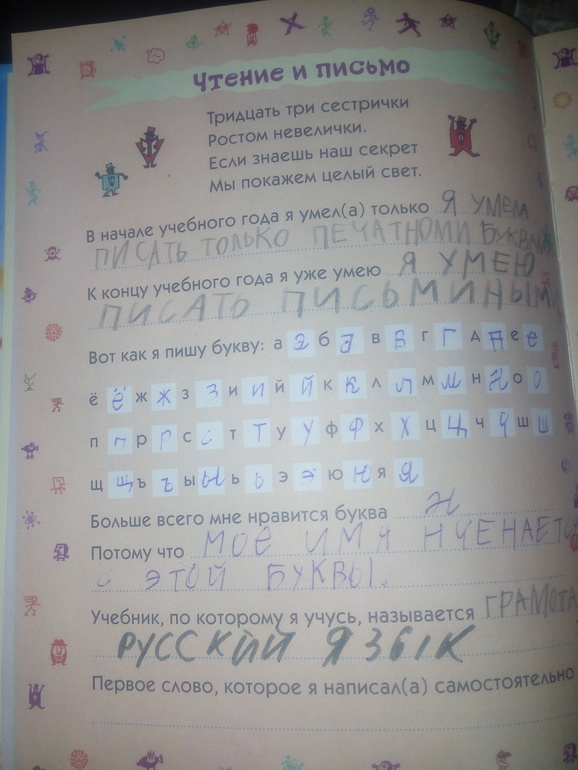 Чтение и письмо
Тридцать три сестрички
Ростом невелички.
Если знаешь наш секрет
Мы покажем целый свет.
В начале учебного года я умел(а) только Я УМЕЛ
ПИСАТЬ ТОЛЬКО ПЕЧАТНОМИ БУКВАМИ
К концу учебного года я уже умею Я УМЕЮ
ПИСАТЬ ПИСЬМИНЫМ
Вот как я пишу букву: а а б б в в г г д д е е
ё ё ж ж з з и и й й к к л л м м н н о о
п п р р с с т т у у ф ф х х ц ц ч ч ш ш
щ щ ъ ъ ы ы ь ь э э ю ю я я
Больше всего мне нравится буква н
Потому что МОЁ ИМЯ НЧЕНАЕТС
С ЭТОЙ БУКВЫ.
Учебник, по которому я учусь, называется ГРАМОТА
РУССКИЙ ЯЗЫК
Первое слово, которое я написал(а) самостоятельно